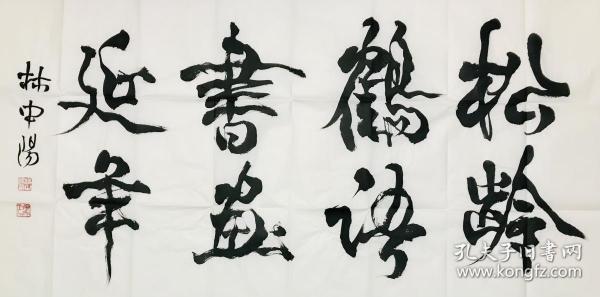 松龄
鶴語
書画
延年
林中陽
孔夫子旧书网
www.kongfz.com